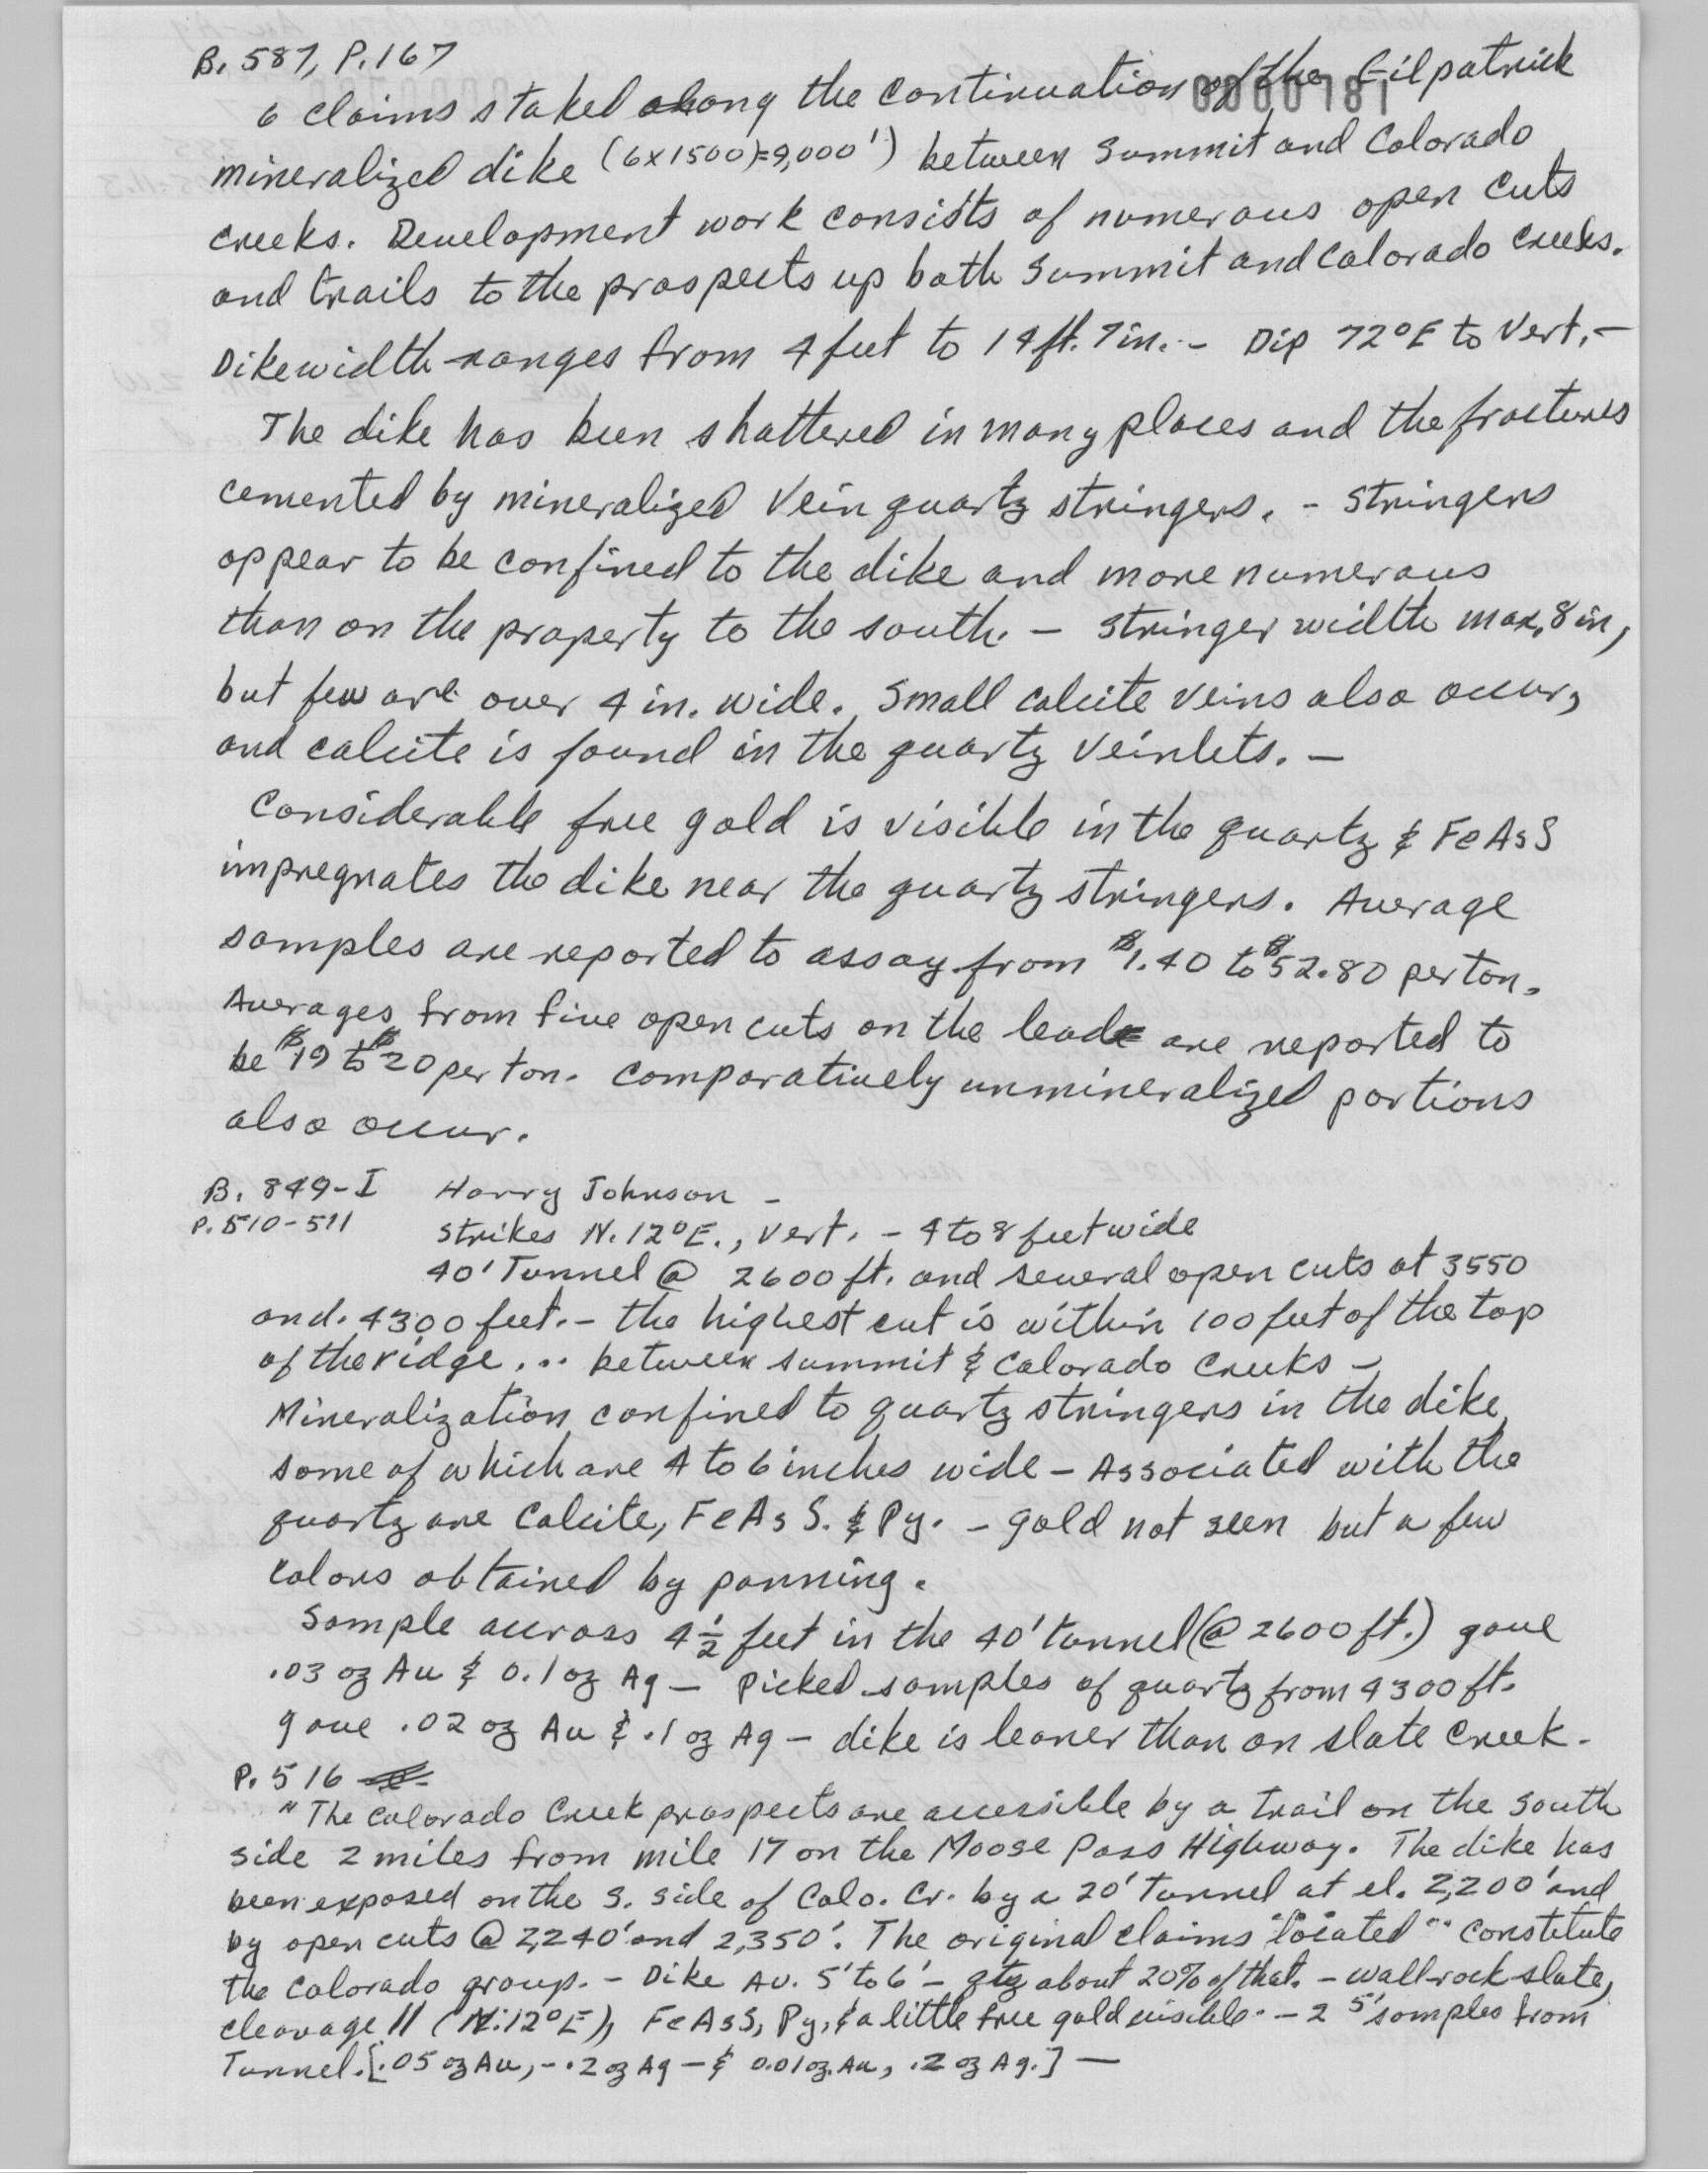 B. 587, P. 167
0000181
6 claims staked along the continuation of the Gilpatrick
mineralized dike (6x1500)=9,000') between Summit and Colorado
creeks. Development work consists of numerous open cuts
and trails to the prospects up both Summit and Colorado creeks.
Dike width ranges from 4 feet to 14 ft. 7 in. - Dip 72°E to Vert. -
The dike has been shattered in many places and the fractures
cemented by mineralized vein quartz stringers. - Stringers
appear to be confined to the dike and more numerous
than on the property to the south. - Stringer width max. 8 in,
but few are over 4 in. wide. Small calcite veins also occur,
and calcite is found in the quartz veinlets. -
Considerable free gold is visible in the quartz & FeAsS
impregnates the dike near the quartz stringers. Average
samples are reported to assay from $1.40 to $52.80 per ton.
Averages from five open cuts on the lead are reported to
be $19 to $20 per ton. Comparatively unmineralized portions
also occur.
B. 849-I Harry Johnson -
P. 510-511 Strikes N. 12°E., Vert. - 4 to 8 feet wide
40' Tunnel @ 2600 ft. and several open cuts at 3550
and. 4300 feet. - the highest cut is within 100 feet of the top
of the ridge ... between Summit & Colorado Creeks -
Mineralization confined to quartz stringers in the dike,
some of which are 4 to 6 inches wide - Associated with the
quartz are Calcite, FeAsS. & Py. - gold not seen but a few
colors obtained by panning.
Sample across 4½ feet in the 40' tunnel (@ 2600 ft.) gave
.03 oz Au & 0.1 oz Ag - Picked samples of quartz from 4300 ft.
gave .02 oz Au & .1 oz Ag - dike is leaner than on Slate Creek.
P. 516
"The Colorado Creek prospects are accessible by a trail on the south
side 2 miles from mile 17 on the Moose Pass Highway. The dike has
been exposed on the S. side of Colo. Cr. by a 20' tunnel at el. 2,200' and
by open cuts @ 2,240' and 2,350'. The original claims "located" constitute
the Colorado group. - Dike Av. 5' to 6' - qtz about 20% of that. - wallrock slate,
cleavage || (N. 12°E), FeAsS, Py, & a little free gold visible. - 2 5' samples from
Tunnel. [.05 oz Au, - .2 oz Ag - & 0.01 oz. Au, .2 oz Ag.] -